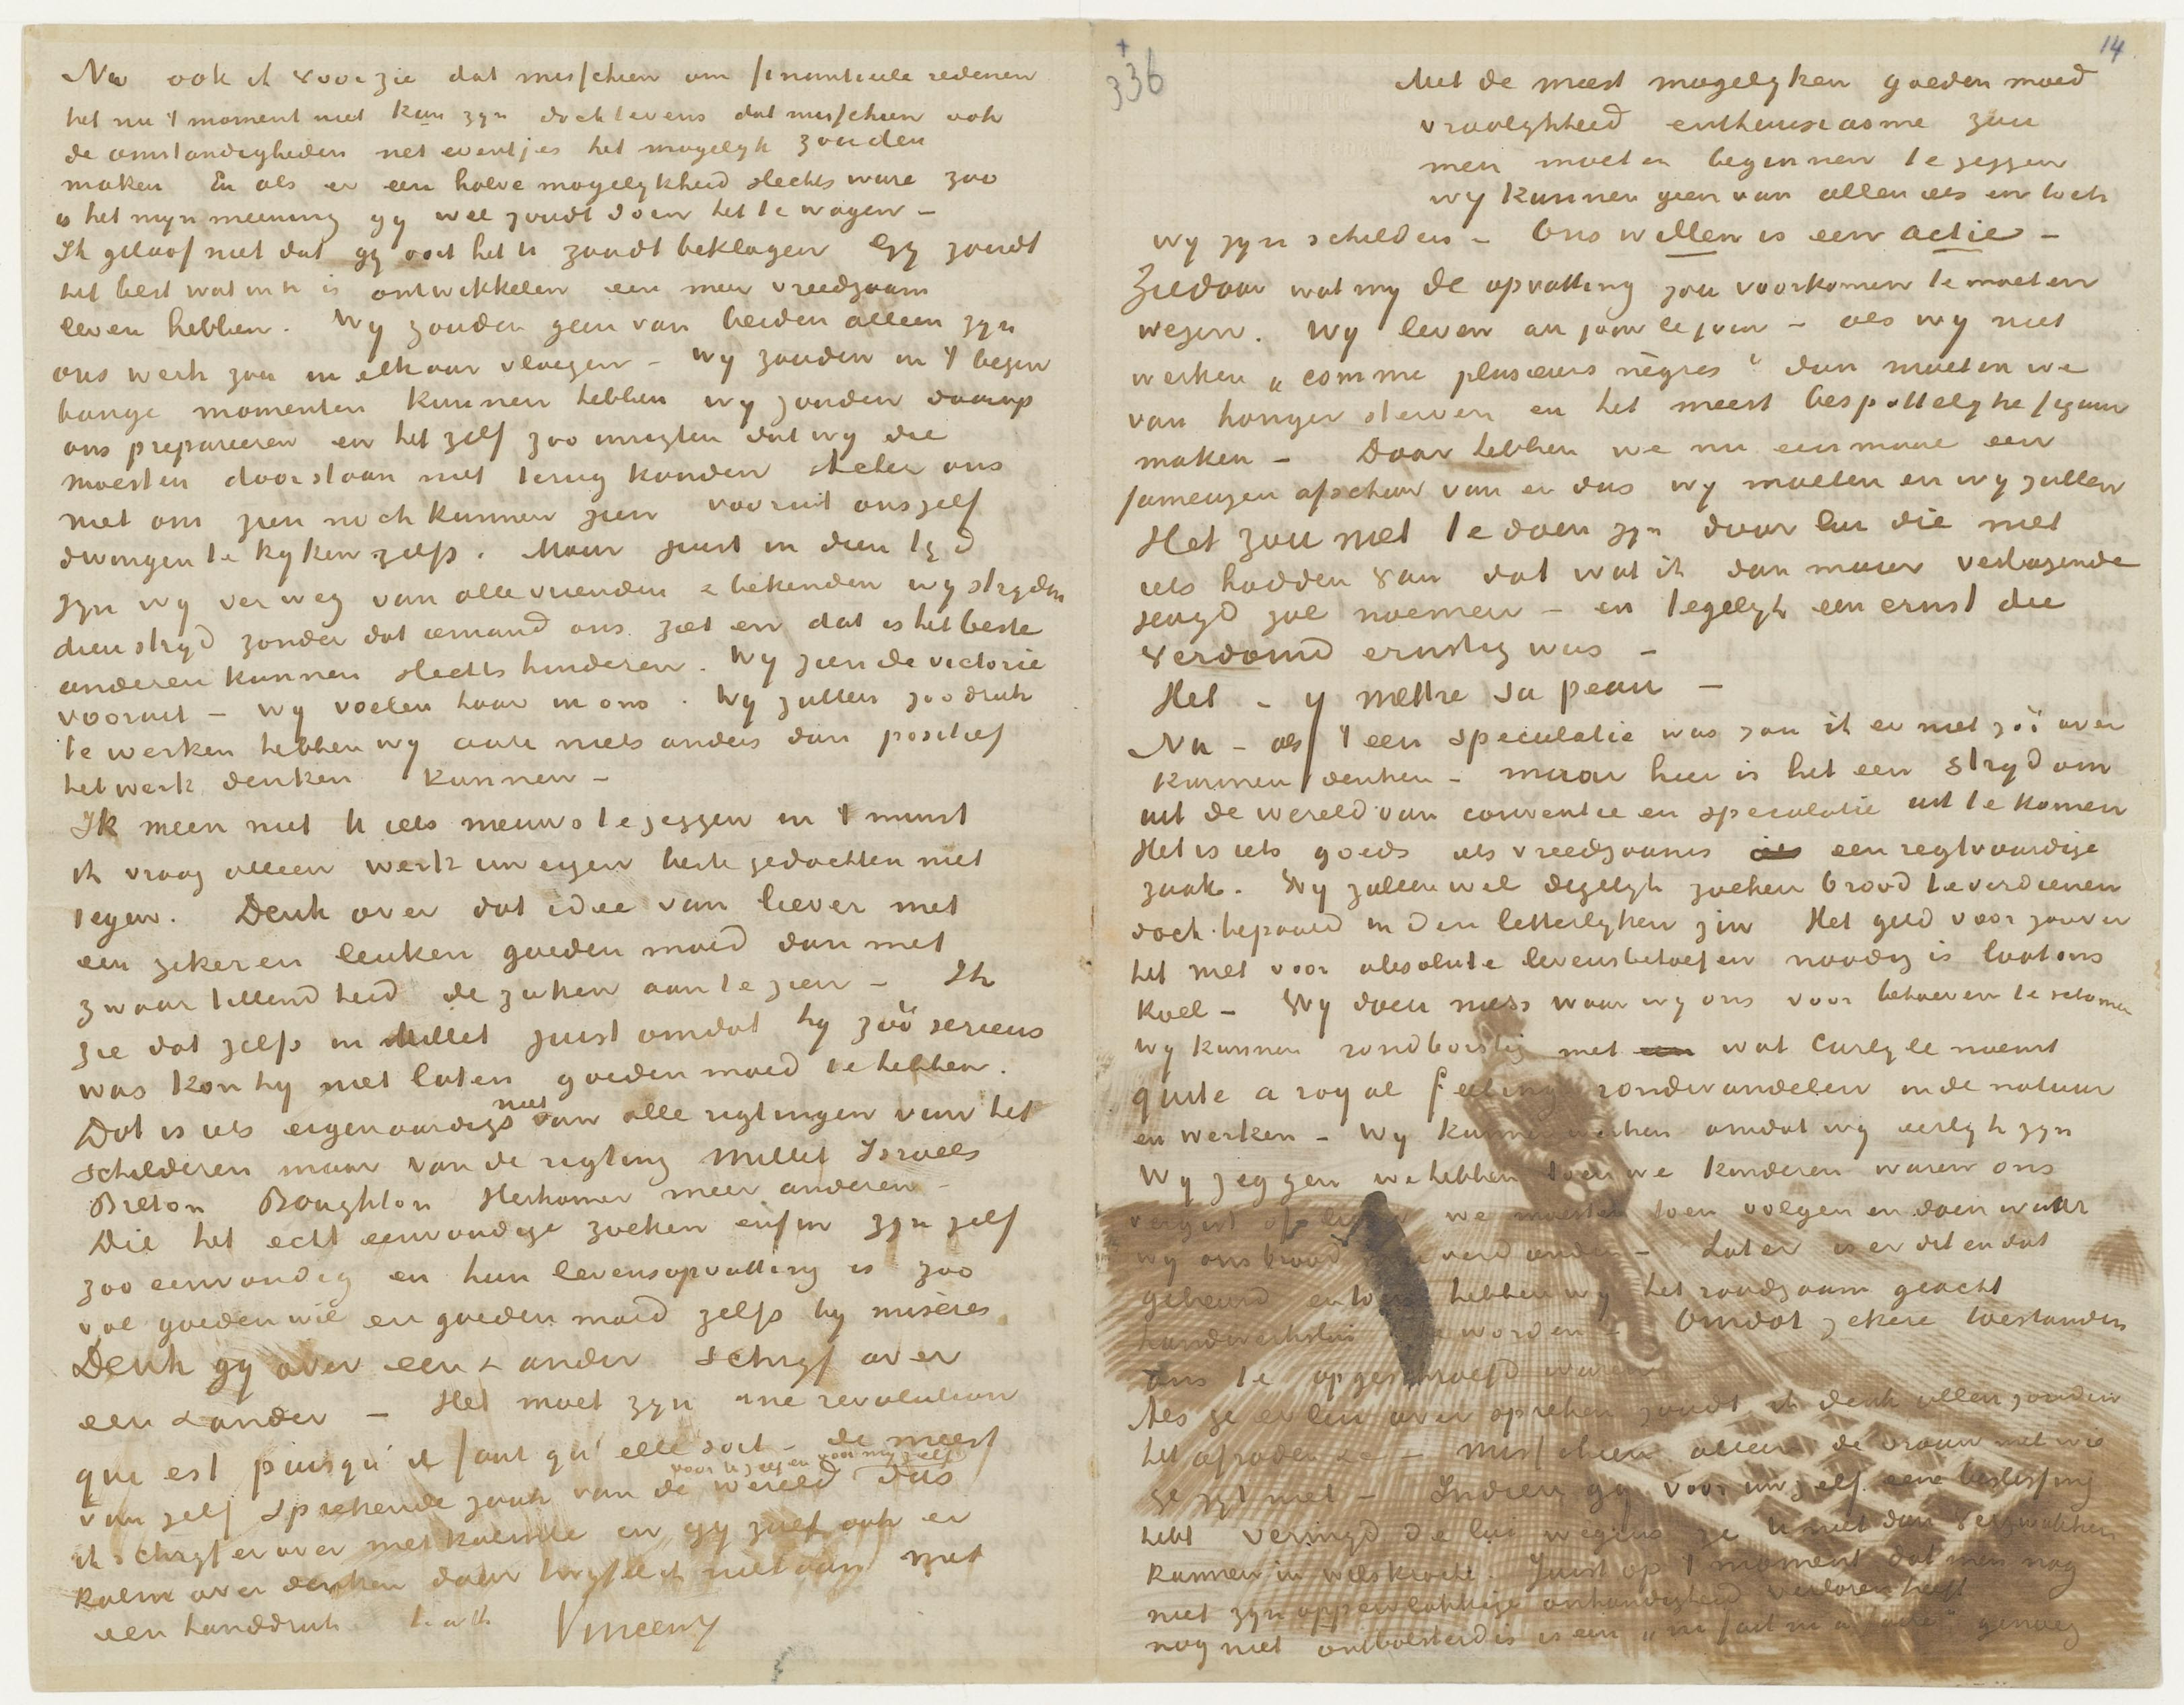 Nu ook ik voorzie dat misschien om financieele redenen
het nu 't moment niet kan zyn doch tevens dat misschien ook
de omstandigheden net eventjes het mogelyk zouden
maken En als er een halve mogelykheid slechts ware zoo
is het myn meening gy wel zoudt doen het te wagen –
Ik geloof niet dat gy ooit het U zoudt beklagen Gy zoudt
het best wat in U is ontwikkelen een meer vreedzaam
leven hebben. Wy zouden geen van beiden alleen zyn
ons werk zou in elkaar vloeyen – Wy zouden in 't begin
bange momenten kunnen hebben wy zouden daarop
ons prepareeren en het zelf zoo inrigten dat wy die
moesten doorstaan niet terug konden Achter ons
niet om zien noch kunnen zien vooruit onszelf
dwingen te kyken zelfs. Maar juist in dien tyd
zyn wy ver weg van alle vrienden & bekenden wy stryden
dien stryd zonder dat iemand ons ziet en dat is het beste
anderen kunnen slechts hinderen. Wy zien de victorie
vooruit – wy voelen haar in ons. Wy zullen zoo druk
te werken hebben wy aan niets anders dan positief
het werk denken kunnen –
Ik meen niet U iets nieuws te zeggen in 't minst
ik vraag alleen werk uw eigen beste gedachten niet
tegen. Denk over dat idee van liever met
een zekeren leuken goeden moed dan met
zwaartillendheid de zaken aan te zien – Ik
zie dat zelfs in Millet juist omdat hy zóó serieus
was kon hy niet laten goeden moed te hebben.
Dat is iets eigenaardigs niet van alle rigtingen van het
schilderen maar van de rigting Millet Israels
Breton Boughton Herkomer meer anderen –
Die het echt eenvoudige zoeken enfin zyn zelf
zoo eenvoudig en hun levensopvatting is zoo
vol goeden wil en goeden moed zelfs by misères
Denk gy over een & ander schryf over
een & ander – Het moet zyn une revolution
qui est puisqu'il faut qu'elle soit – de meest
voor U zelf en voor my zelf
van zelf sprekende zaak van de wereld dus
ik schryf er over met kalmte en gy zult ook er
kalm over denken daar twyfel ik niet aan met
een handdruk t. à t. Vincent
336
14
Met de meest mogelyken goeden moed
vroolykheid enthousiasme zou
men moeten beginnen te zeggen
wy kunnen geen van allen iets en toch
wy zyn schilders – Ons willen is een actie –
Ziedaar wat my de opvatting zou voorkomen te moeten
wezen. Wy leven au jour le jour – als wy niet
werken „comme plusieurs nègres" dan moeten we
van honger sterven en het meest bespottelyke figuur
maken – Daar hebben we nu eenmaal een
fameuzen afschuw van en dus wy moeten en wy zullen
Het zou niet te doen zyn door lui die niet
iets hadden van dat wat ik dan maar verbazende
jeugd zal noemen – en tegelyk een ernst die
verdomd ernstig was –
Het – y mettre sa peau –
Nu – als 't een speculatie was zou ik er niet zóó over
kunnen denken – maar hier is het een stryd om
uit de wereld van conventie en speculatie uit te komen
Het is iets goeds iets vreedzaams een regtvaardige
zaak. Wy zullen wel degelyk zoeken brood te verdienen
doch bepaald in den letterlyken zin Het geld voor zoover
het niet voor absolute levensbehoeften noodig is laat ons
koel – Wy doen niets waar wy ons voor behoeven te schamen
wy kunnen rondborstig met wat Carlyle noemt
quite a royal feeling rondwandelen in de natuur
en werken – Wy kunnen werken omdat wy eerlyk zyn
Wy zeggen we hebben toen we kinderen waren ons
vergist of liever we moesten toen volgen en doen waar
wy ons brood verdienden – Later is er dit en dat
gebeurd en toen hebben wy het raadzaam geacht
handwerkslui te worden – Omdat zekere toestanden
ons te opgeschroefd waren
Als ge er lui over spreken zoudt ik denk allen zouden
het afraden – Misschien alleen de vrouw met wie
ge zyt niet – Indien gy voor uw zelf eene beslissing
hebt vermyd de lui wegens ze U niet dan verzwakken
kunnen in wilskracht. Juist op 't moment dat men nog
niet zyn oppervlakkige onhandigheid verloren heeft
nog niet ontbolsterd is is een „ni fait ni à faire" genoeg